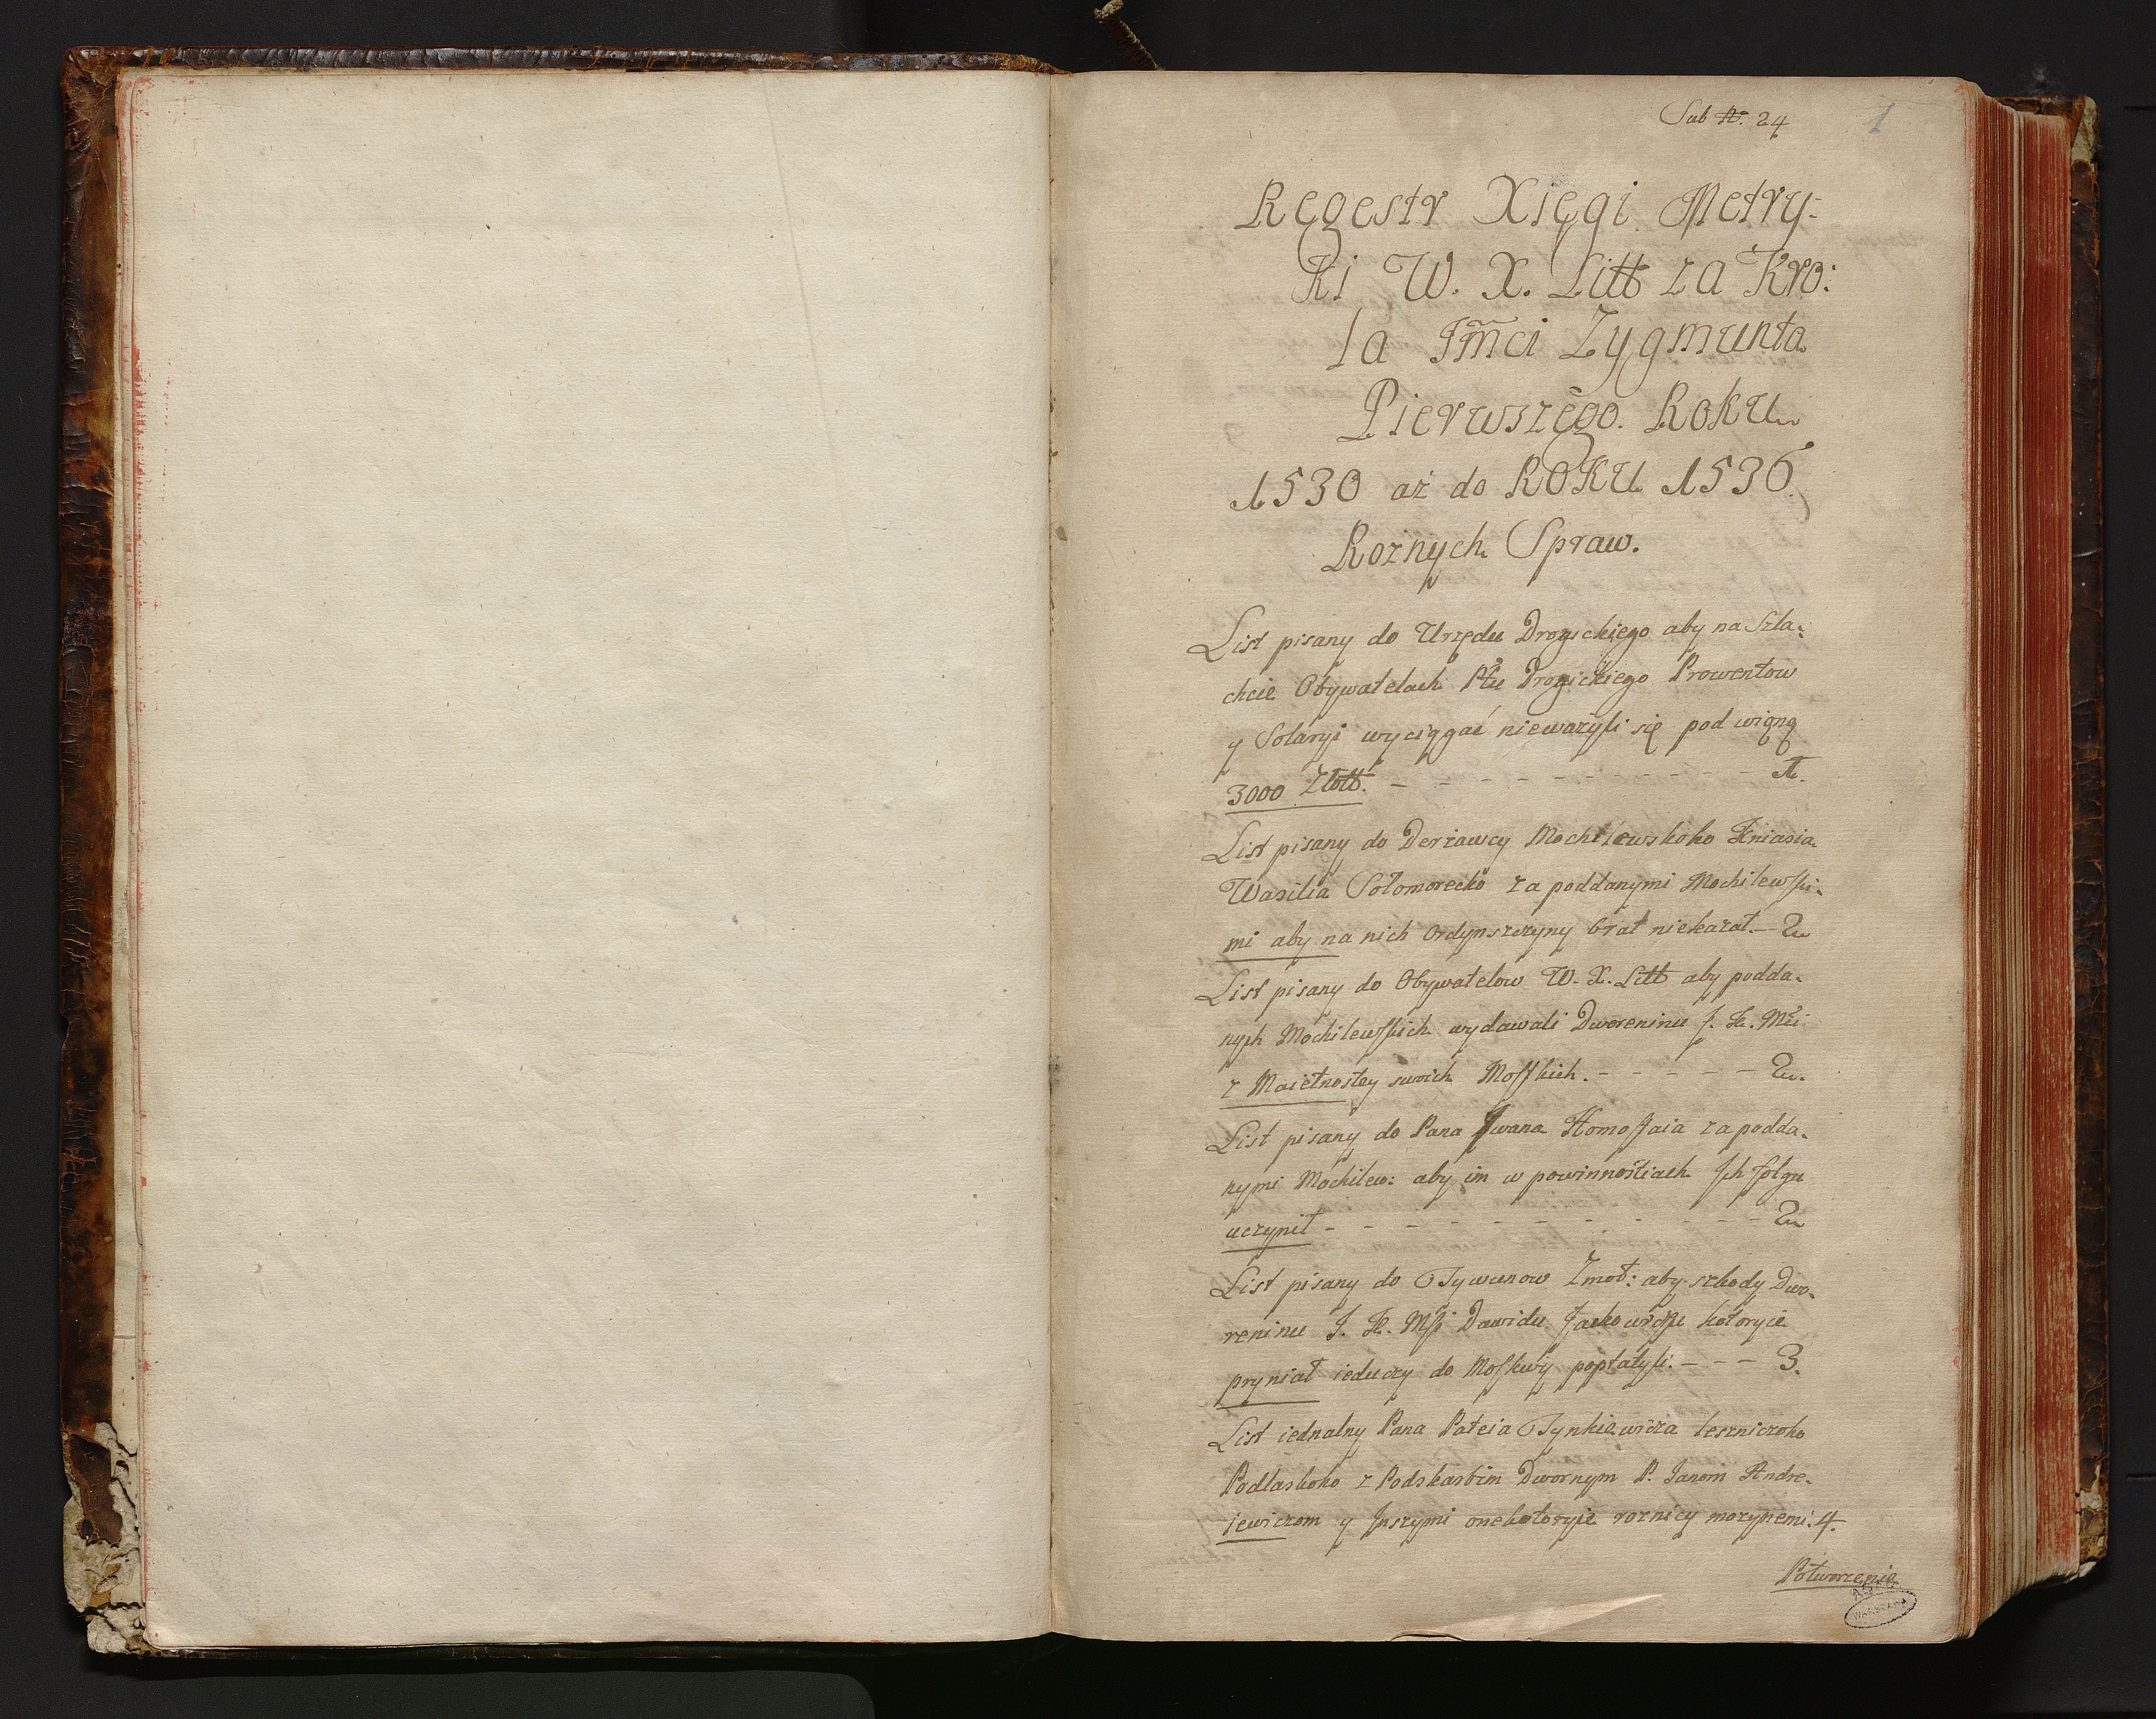 Sub N. 24
1
Regestr Xięgi Metry-
ki W. X. Litt za Kro:
la Jmci Zygmunta
Pierwszego. Roku
1530 aż do Roku 1536.
Roznych Spraw.
List pisany do Urzędu Drogickiego aby na Szla-
chcie Obywatelach Ptu Drogickiego Prowentow
y Solaryi wyciągać nieważyli się pod winą
3000 Złott. - - - - - - - - - - 1.
List pisany do Derżawcy Mochilewskoho Kniazia
Wasilia Sołomorecko za poddanymi Mochilewski-
mi aby na nich Ordynszczyny brat niekazał. - 2
List pisany do Obywatelow W. X. Litt aby podda-
nych Mochilewskich wydawali Dworeninu J. K. Mći
z Maiętnostey swoich Moskich. - - - - - 2.
List pisany do Pana Jwana Hornostaia za podda-
nymi Mochilew: aby im w powinnostiach Jch folgu
uczynił - - - - - - - - - - - 2
List pisany do Tywunow Zmot: aby szkody Dwo-
reninu J. K. Mśi Dawidu Jackowiczu kotoryie
pryniał ieduczy do Moskwy popłatyli. - - - 3.
List iednalny Pana Pateia Tynkiewicza Leszniczoho
Podlaskoho z Podskarbim Dwornym P. Janom Andre-
iewiczom y Jnszymi onekotoryie roznicy mezynemi. 4.
Potworzenie
WARSZAWA